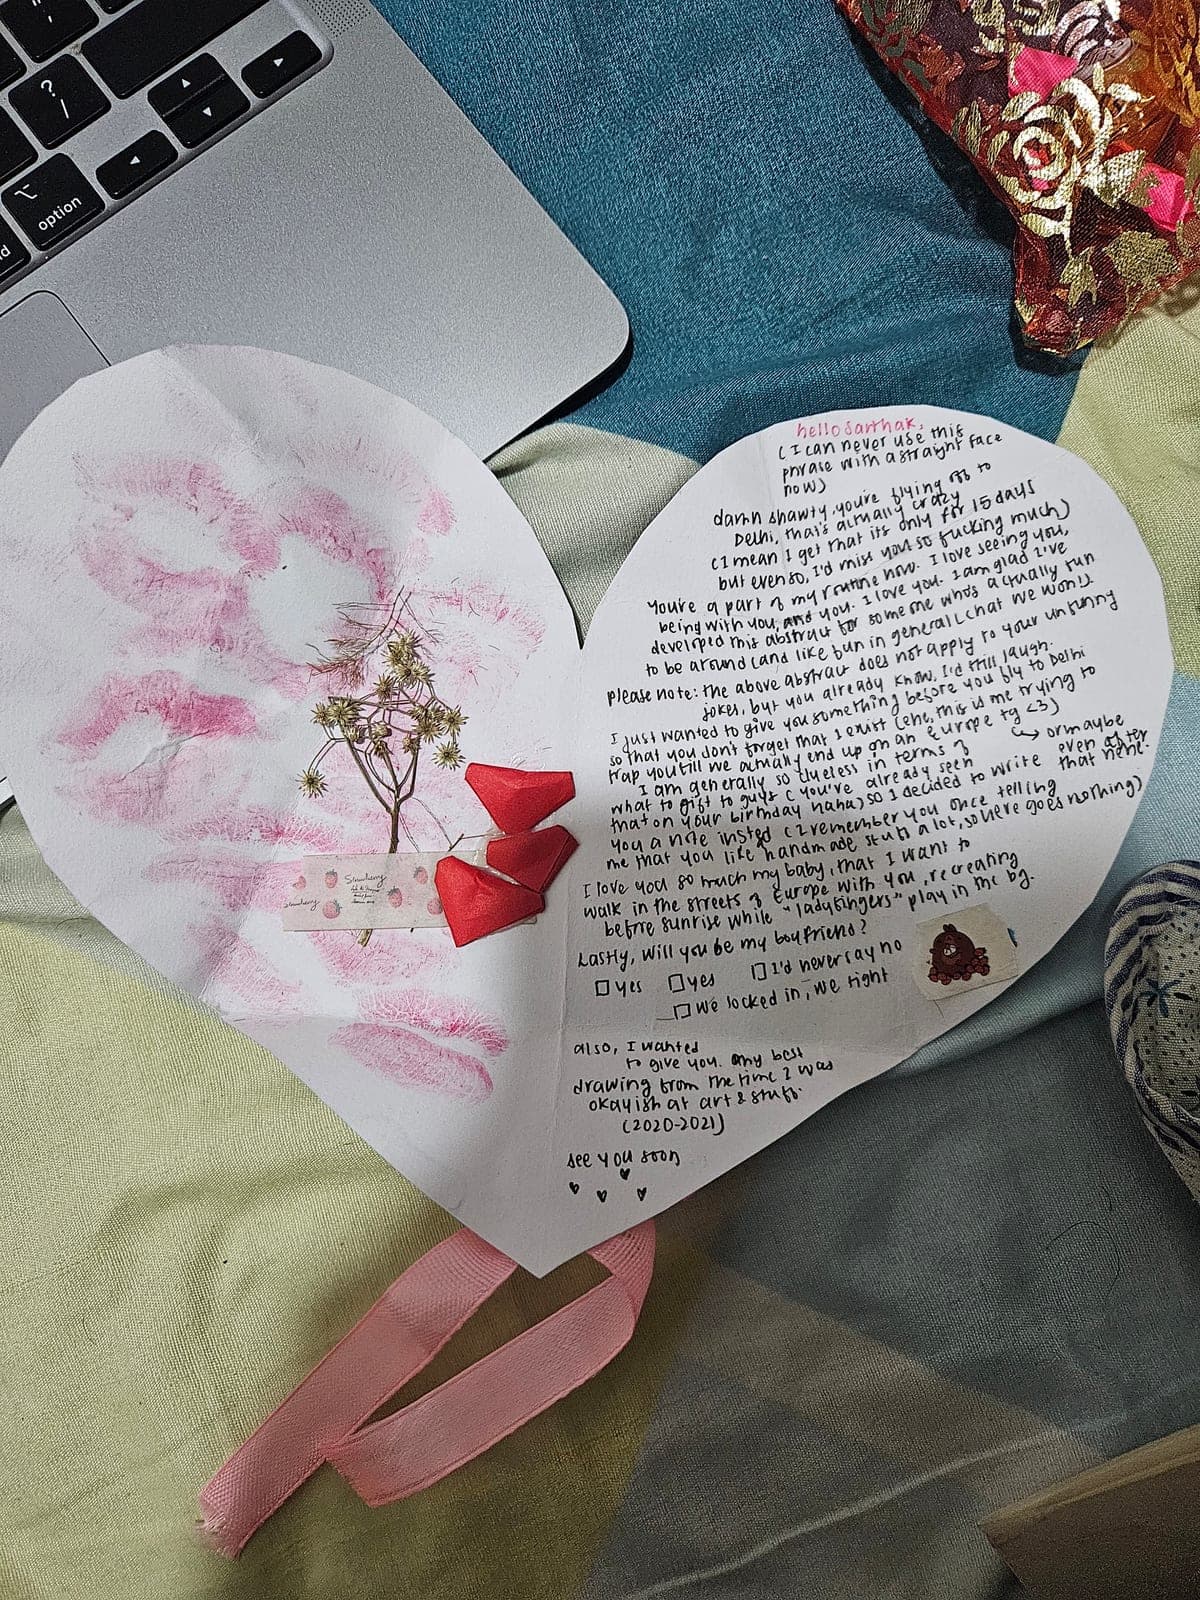 ?
/
option
hello sarthak,
(I can never use this
phrase with a straight face
now)
damn shawty, you're flying off to
Delhi, that's actually crazy
(I mean I get that its only for 15 days
but even so, I'd miss you so fucking much)
You're a part of my routine now. I love seeing you,
being with you, and you. I love you. I am glad I've
developed this abstract for someone who's actually fun
to be around (and like fun in general
please note: the above abstract does not apply to your unfunny
jokes, but you already know, I'd still laugh.
I just wanted to give you something before you fly to Delhi
so that you don't forget that I exist (ehe, this is me trying to
trap you till we actually end up on an Europe tg <3)
↳ or maybe
even after
that hehe.
I am generally so clueless in terms of
what to gift to guys (you've already seen
that on your birthday haha) so I decided to write
you a note insted (I remember you once telling
me that you like handmade stuff a lot, so here goes nothing)
I love you so much my baby, that I want to
walk in the streets of Europe with you, recreating
before sunrise while "ladyfingers" play in the bg.
Lastly, will you be my boyfriend?
□ yes □ yes □ I'd never say no
□ we locked in, we right
also, I wanted
to give you. my best
drawing from the time I was
okayish at art & stuff.
(2020-2021)
see you soon
Strawberry
Strawberry